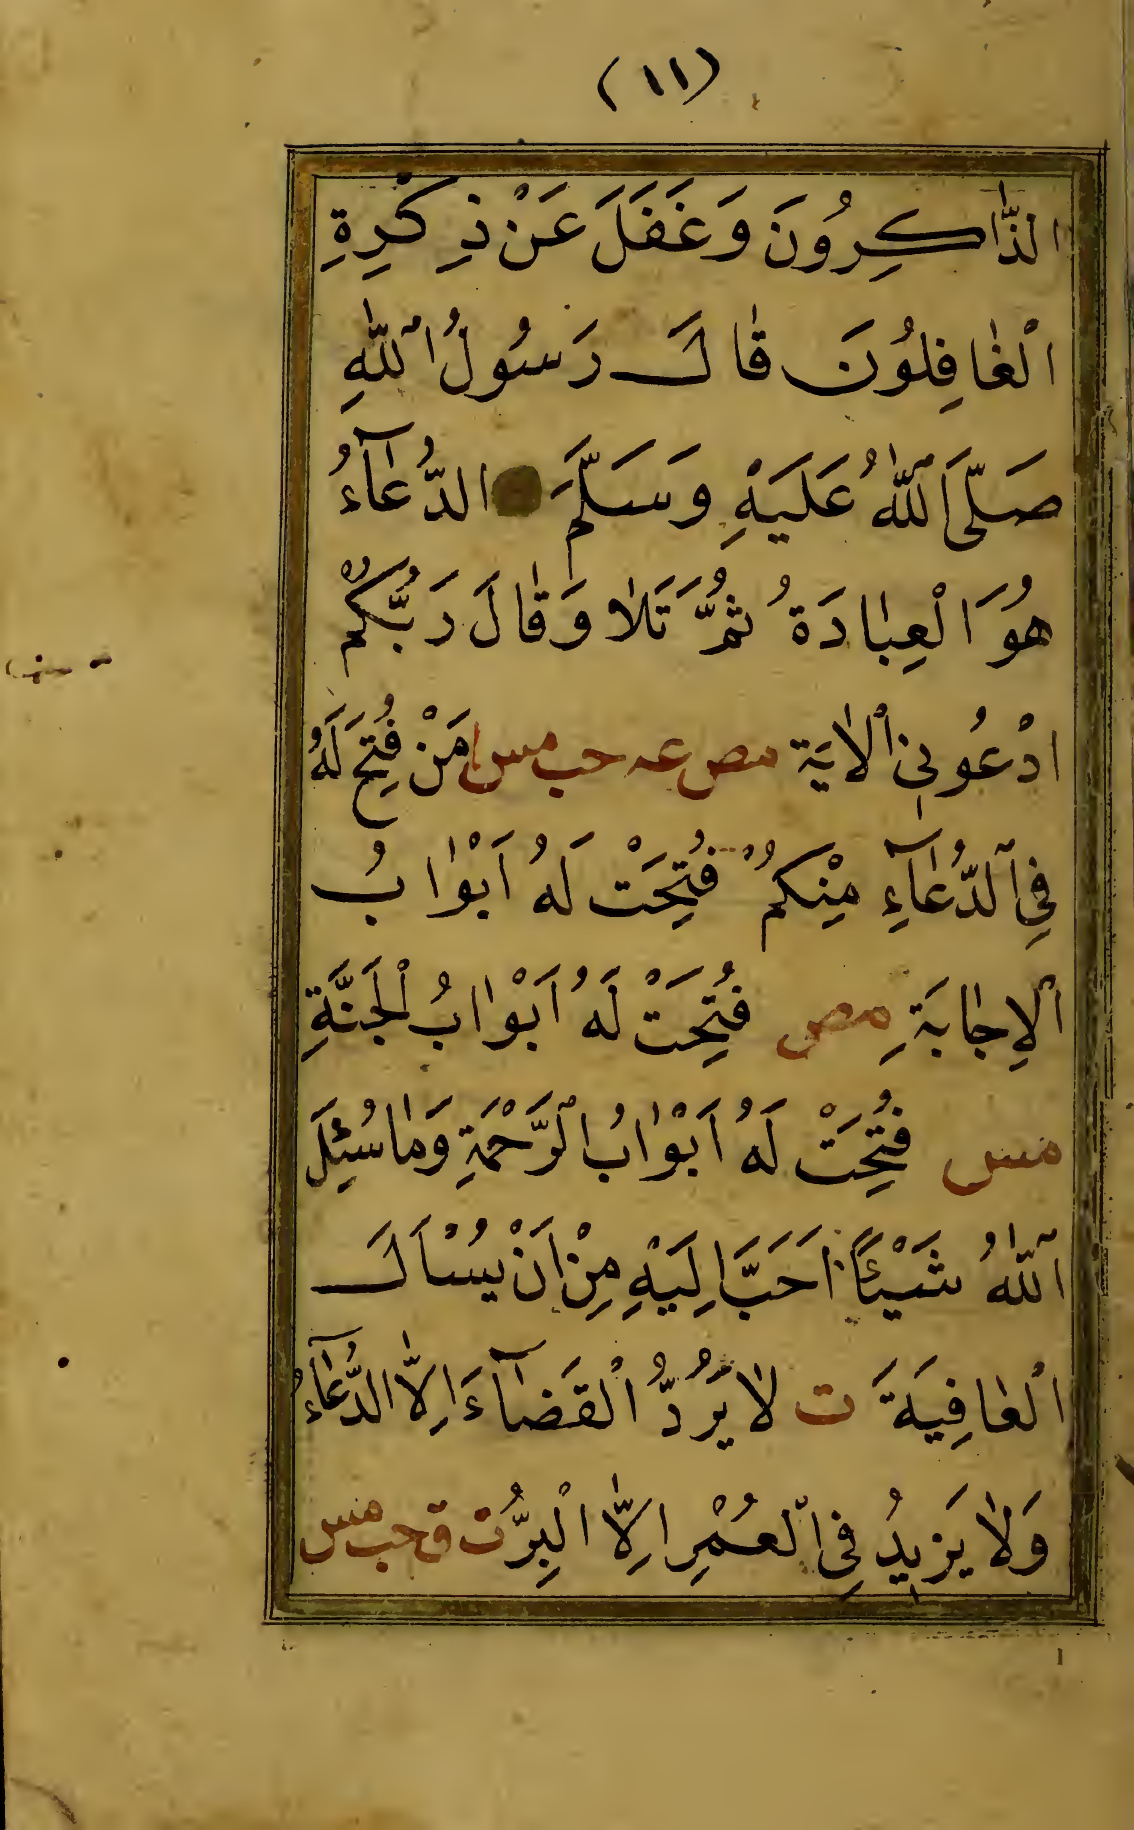 (١١)
الذَّاكِرُونَ وَغَفَلَ عَنْ ذِكْرِهِ
الْغَافِلُونَ قَالَ رَسُولُ اللّٰهِ
صَلَّى اللّٰهُ عَلَيْهِ وَسَلَّمَ الدُّعَآءُ
هُوَ الْعِبَادَةُ ثُمَّ تَلَا وَقَالَ رَبُّكُمُ
ادْعُونِي الْاٰيَة مص عه حب مس مَنْ فُتِحَ لَهُ
فِي الدُّعَآءِ مِنْكُمْ فُتِحَتْ لَهُ اَبْوَابُ
الْاِجَابَةِ مص فُتِحَتْ لَهُ اَبْوَابُ الْجَنَّةِ
مس فُتِحَتْ لَهُ اَبْوَابُ الرَّحْمَةِ وَمَا سُئِلَ
اللّٰهُ شَيْئًا اَحَبَّ اِلَيْهِ مِنْ اَنْ يُسْاَلَ
الْعَافِيَةَ ت لَا يَرُدُّ الْقَضَآءَ اِلَّا الدُّعَآءُ
وَلَا يَزِيدُ فِي الْعُمْرِ اِلَّا الْبِرُّ ت ق حب مس